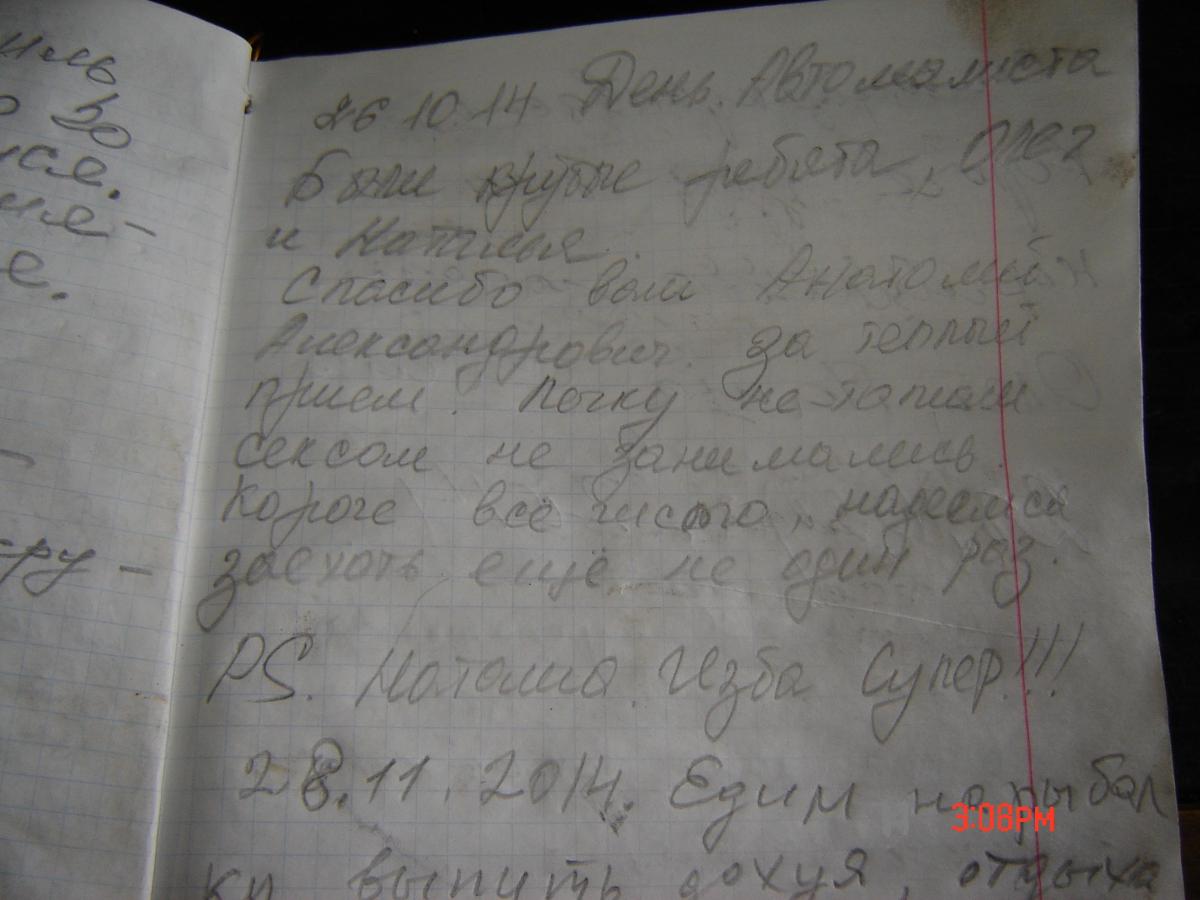 иль
30
ся.
е.
ру -
26 10.14 День Автомалиста
Были крутые ребята, Олег
и Наталья.
Спасибо вам Анатолий
Александрович. за теплый
прием. Печку не топили
сексом не занимались.
Короче всё чисто, надеемся
заехать ещё не один раз.
PS. Наташа Изба Супер!!!
28.11.2014. Едим на рыбал
ки выпить дохуя, отдыха
3:08PM